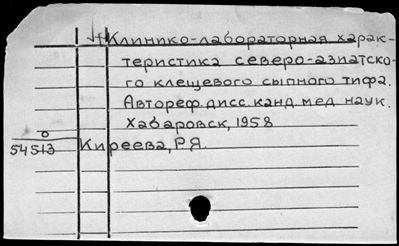 Клинико-лабораторная харак-
теристика северо-азиатско-
го клещевого сыпного тифа.
Автореф. дисс. канд. мед. наук.
Хабаровск, 1958
54513 Киреева, Р.Я.